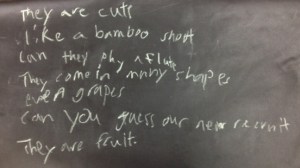 They are cuts
Like a bamboo shoot
Can they play a flute
They come in many shapes
even grapes
can you guess our new recruit
They are fruit.